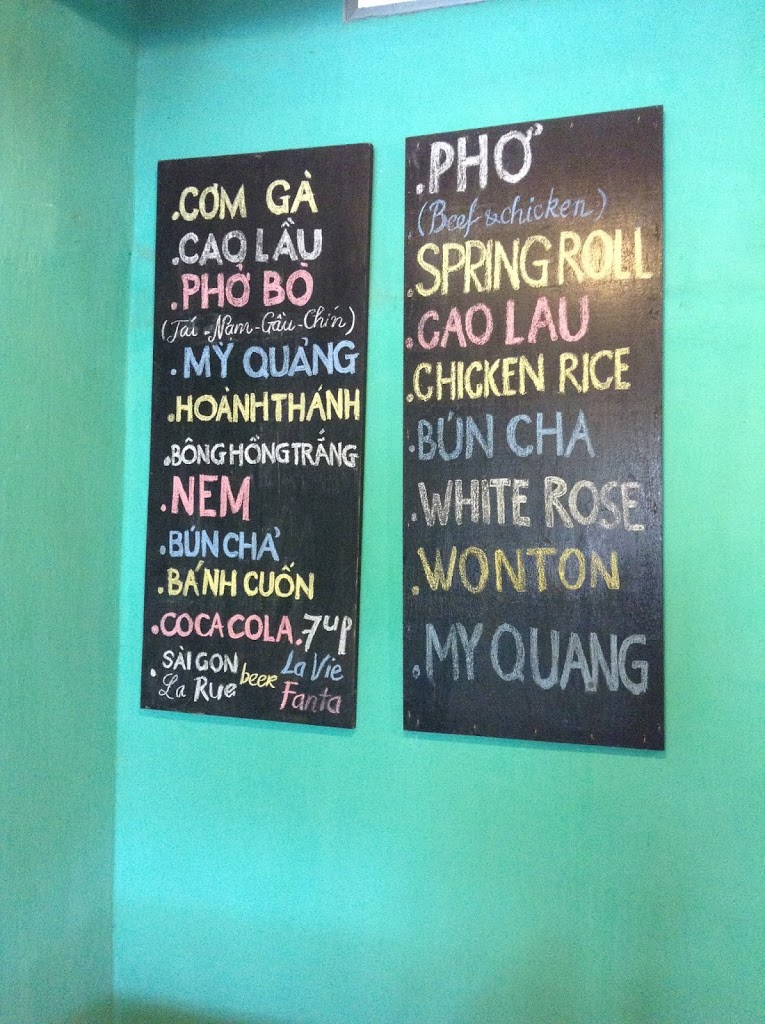 .CƠM GÀ
.CAO LẦU
.PHỞ BÒ
(Tái - Nạm - Gầu - Chín)
.MỲ QUẢNG
.HOÀNH THÁNH
.BÔNG HỒNG TRẮNG
.NEM
.BÚN CHẢ
.BÁNH CUỐN
.COCA COLA .7up
.SÀI GON beer La Vie
La Rue Fanta
.PHỞ
(Beef & chicken)
.SPRING ROLL
.CAO LAU
.CHICKEN RICE
.BÚN CHA
.WHITE ROSE
.WONTON
.MY QUANG